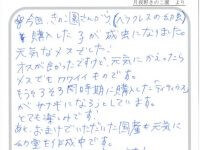 月夜野きのこ園 より
今回、きのこ園さんから(ヘラクレスの幼虫)
購入した3が成虫になりました。
元気なメスでした。
オスが良かったですけど、元気にかえったら
メスでもカワイイものです。
もうそろそろ同時期に購入した
がサナギになろうとしています。
とても楽しみです。
あと、おまけでいただいた国産も元気に
幼虫を作成中です。